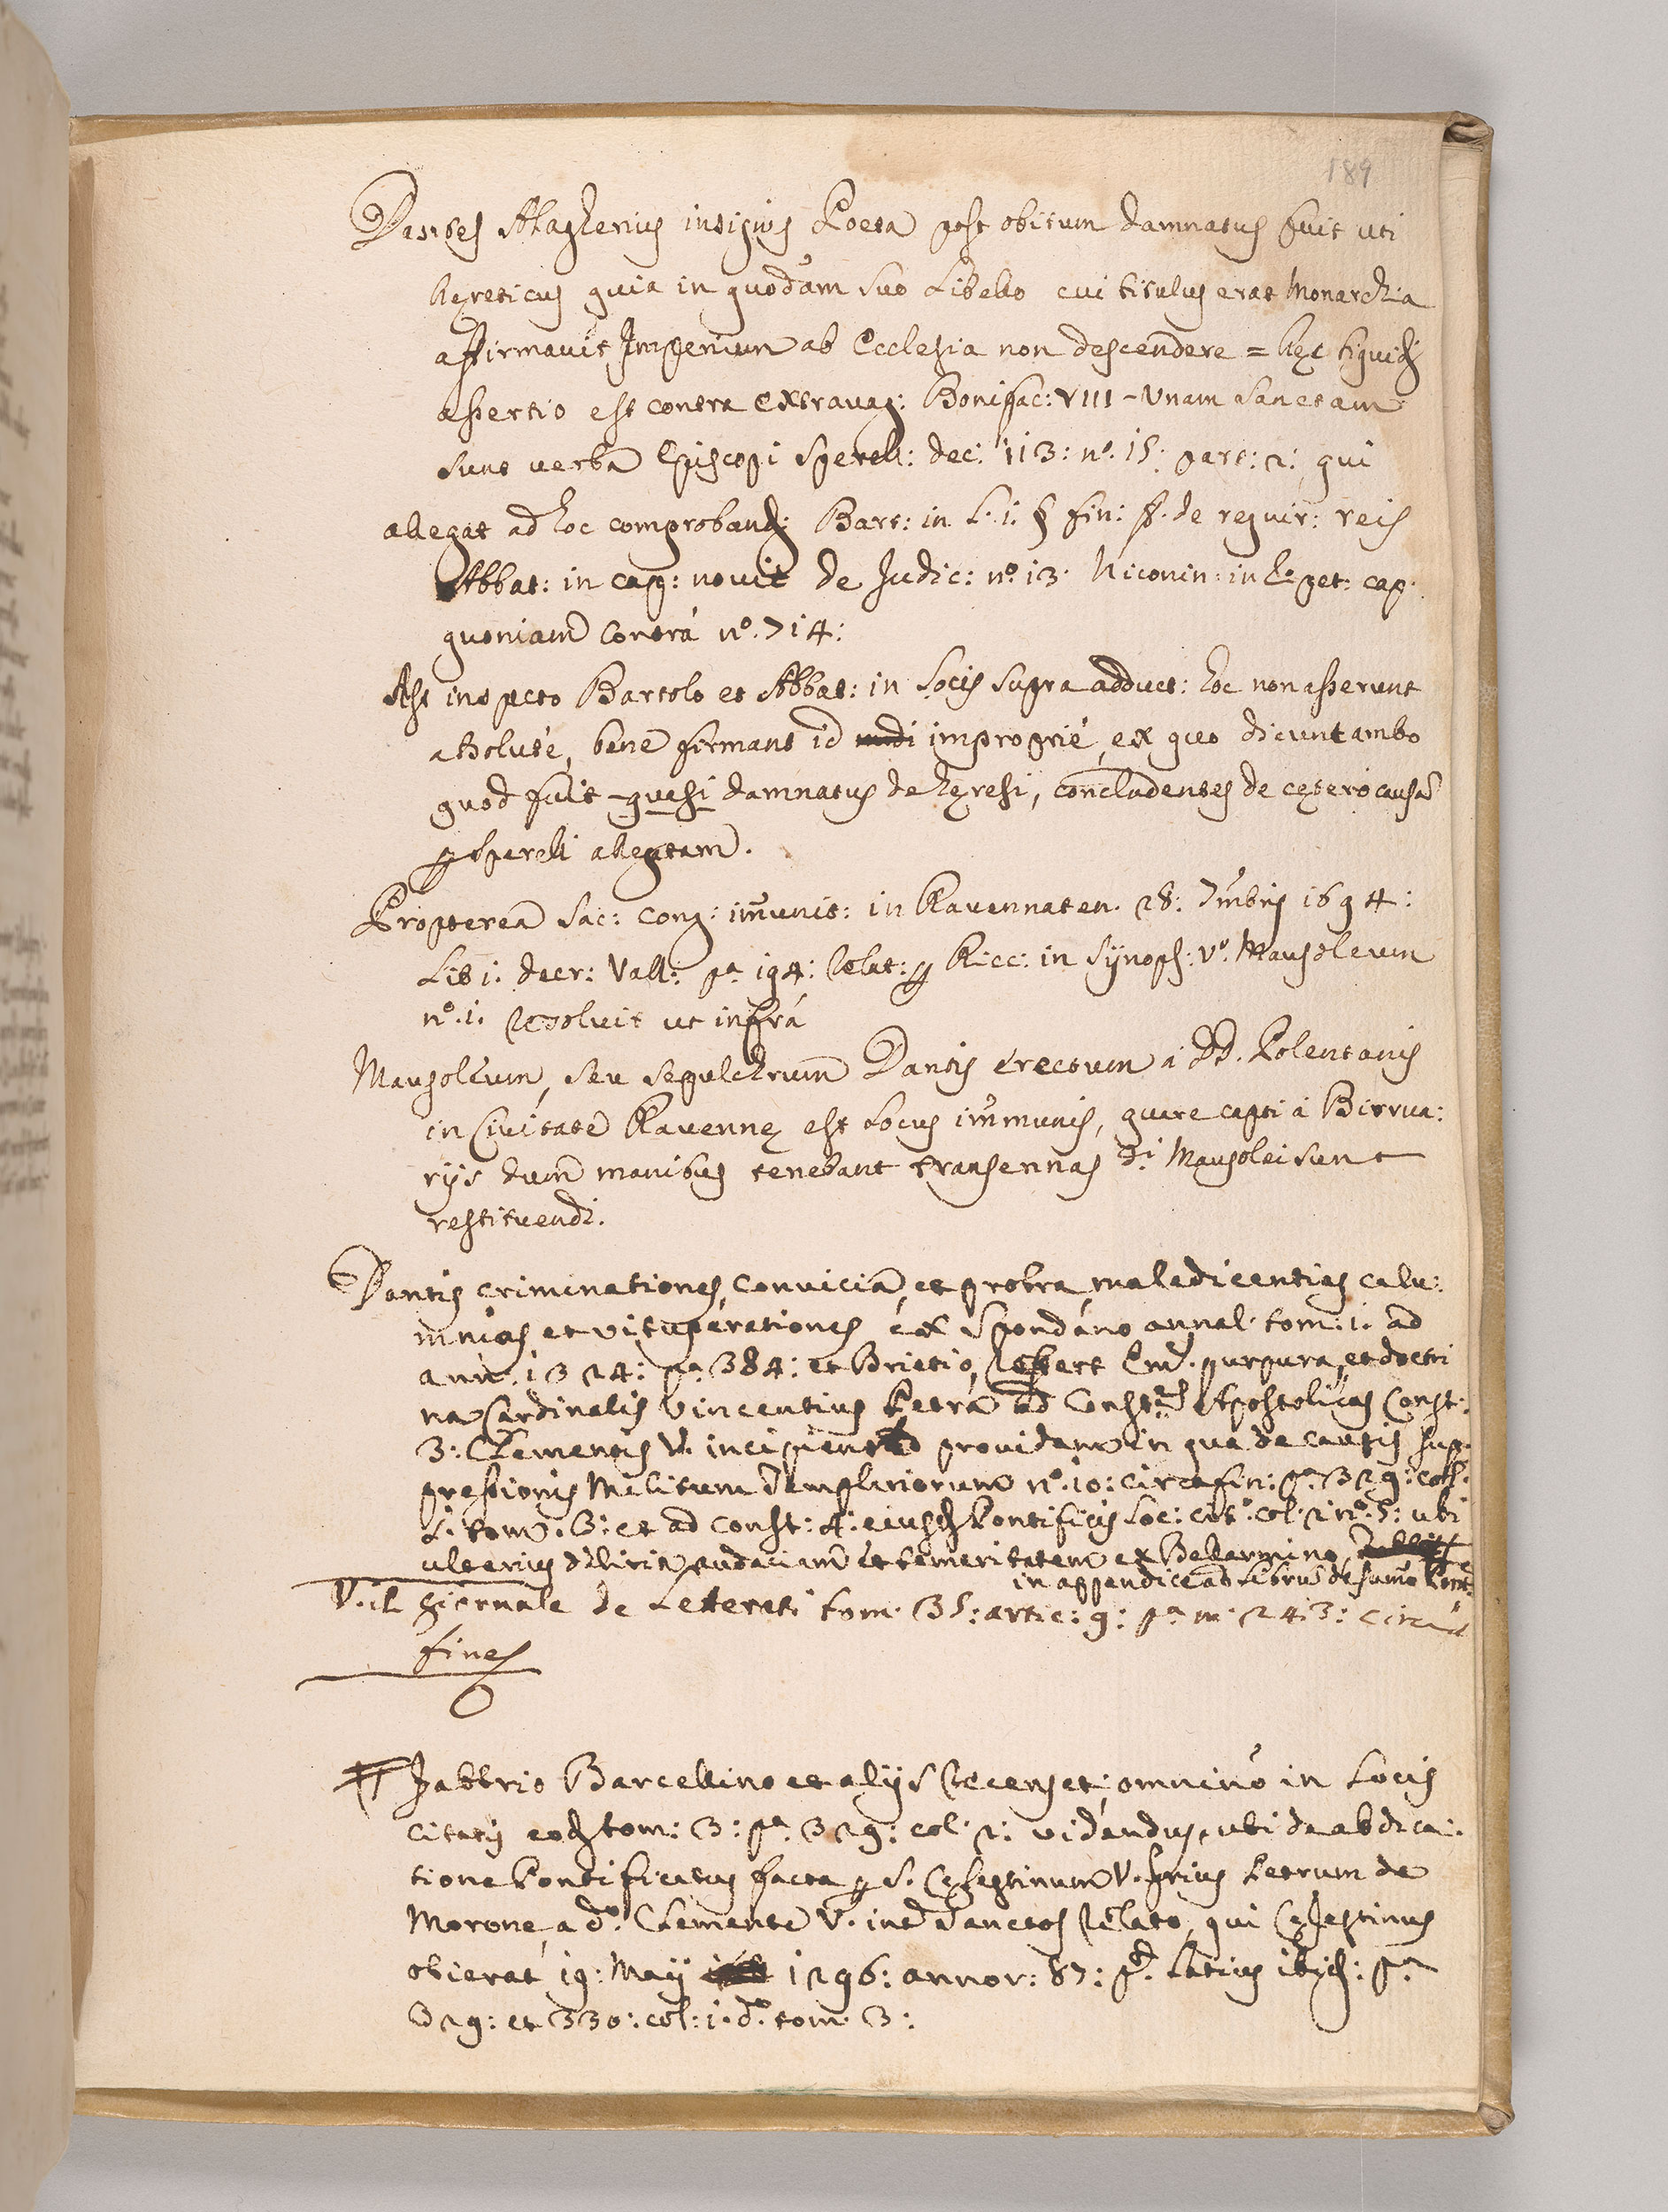 189
Dantes Alagherius insignis Poeta post obitum damnatus fuit uti
hęreticus quia in quodam suo Libello cui titulus erat Monarchia
affirmavit Imperium ab Ecclesia non descendere = hęc siquid.
assertio est contra extravag: Bonifac: VIII - Unam Sanctam
sunt verba Episcopi Sperell: dec: 113: n.º 15: part: 2: qui
allegat ad hoc comproband: Bart: in L. i. § fin: ff. de requir: reis
Abbat: in cap: novit de Judic: nº. 13. Niconin: in repet: cap.
quoniam contrá nº. 714:
Ast inspecto Bartolo et Abbat: in locis supra adduct: hoc non asserunt
absoluté, bene firmant id improprié, ex quo dicunt ambo
quod fuit - quasi damnatus de hęresi, concludentes de cętero causam
p Sperelli allegatam.
Proptereà Sac: Cong: immunit: in Ravennaten. 28: 7mbris 1694:
Lib i. decr: Vall: pª 194: Relat: p Ricc: in Synops: vº. Mausoleum
nº. 1. resolvit ut infrá
Mausoleum, seu sepulchrum Dantis erectum á DD. Polentanis
in Civitate Ravennę est locus immunis, quare capti á Birrua:
rijs dum manibus tenebant transennas di Mausolei sunt
restituendi.
Dantis criminationes, convicia, et probra, maledicentias calu:
mnias et vituperationes ex Spondano annal. tom: 1. ad
ann. 1324: pª. 384: et Brietio, refert Em. purpura, et doctri
na Cardinalis Vincentius Petra ad Const. Apostolicas Const:
3: Clementis V. incipient providam in qua de causis sup
pressionis Militum Templariorum nº. 10: circa fin: pª 329: col.
i. tom. 3: et ad Const: 4: eiusd Pontificis loc: cit. col. 2 nº. 5: ubi
ulterius deliria, audaciam et temeritatem ex Bellarmino,
in appendice ad Libros de sumo Pont
V. il Giornale de Letterati tom. 35: artic: 9: pª m. 243: circa
fines
Fabbrio Barcellino et alijs recenset; omninò in locis
citatis eod tom: 3: pª. 329: col. 2: videndus, ubi de abdica:
tione Pontificatus facta p S. Cęlestinum V. prius Petrum de
Morone, a dº. Clemente V. inter Sanctos relato, qui Cęlestinus
obierat 19: Maij 1296: annor: 87: pd. latius ibid: pª
329: et 330: col: i. dº. tom. 3: